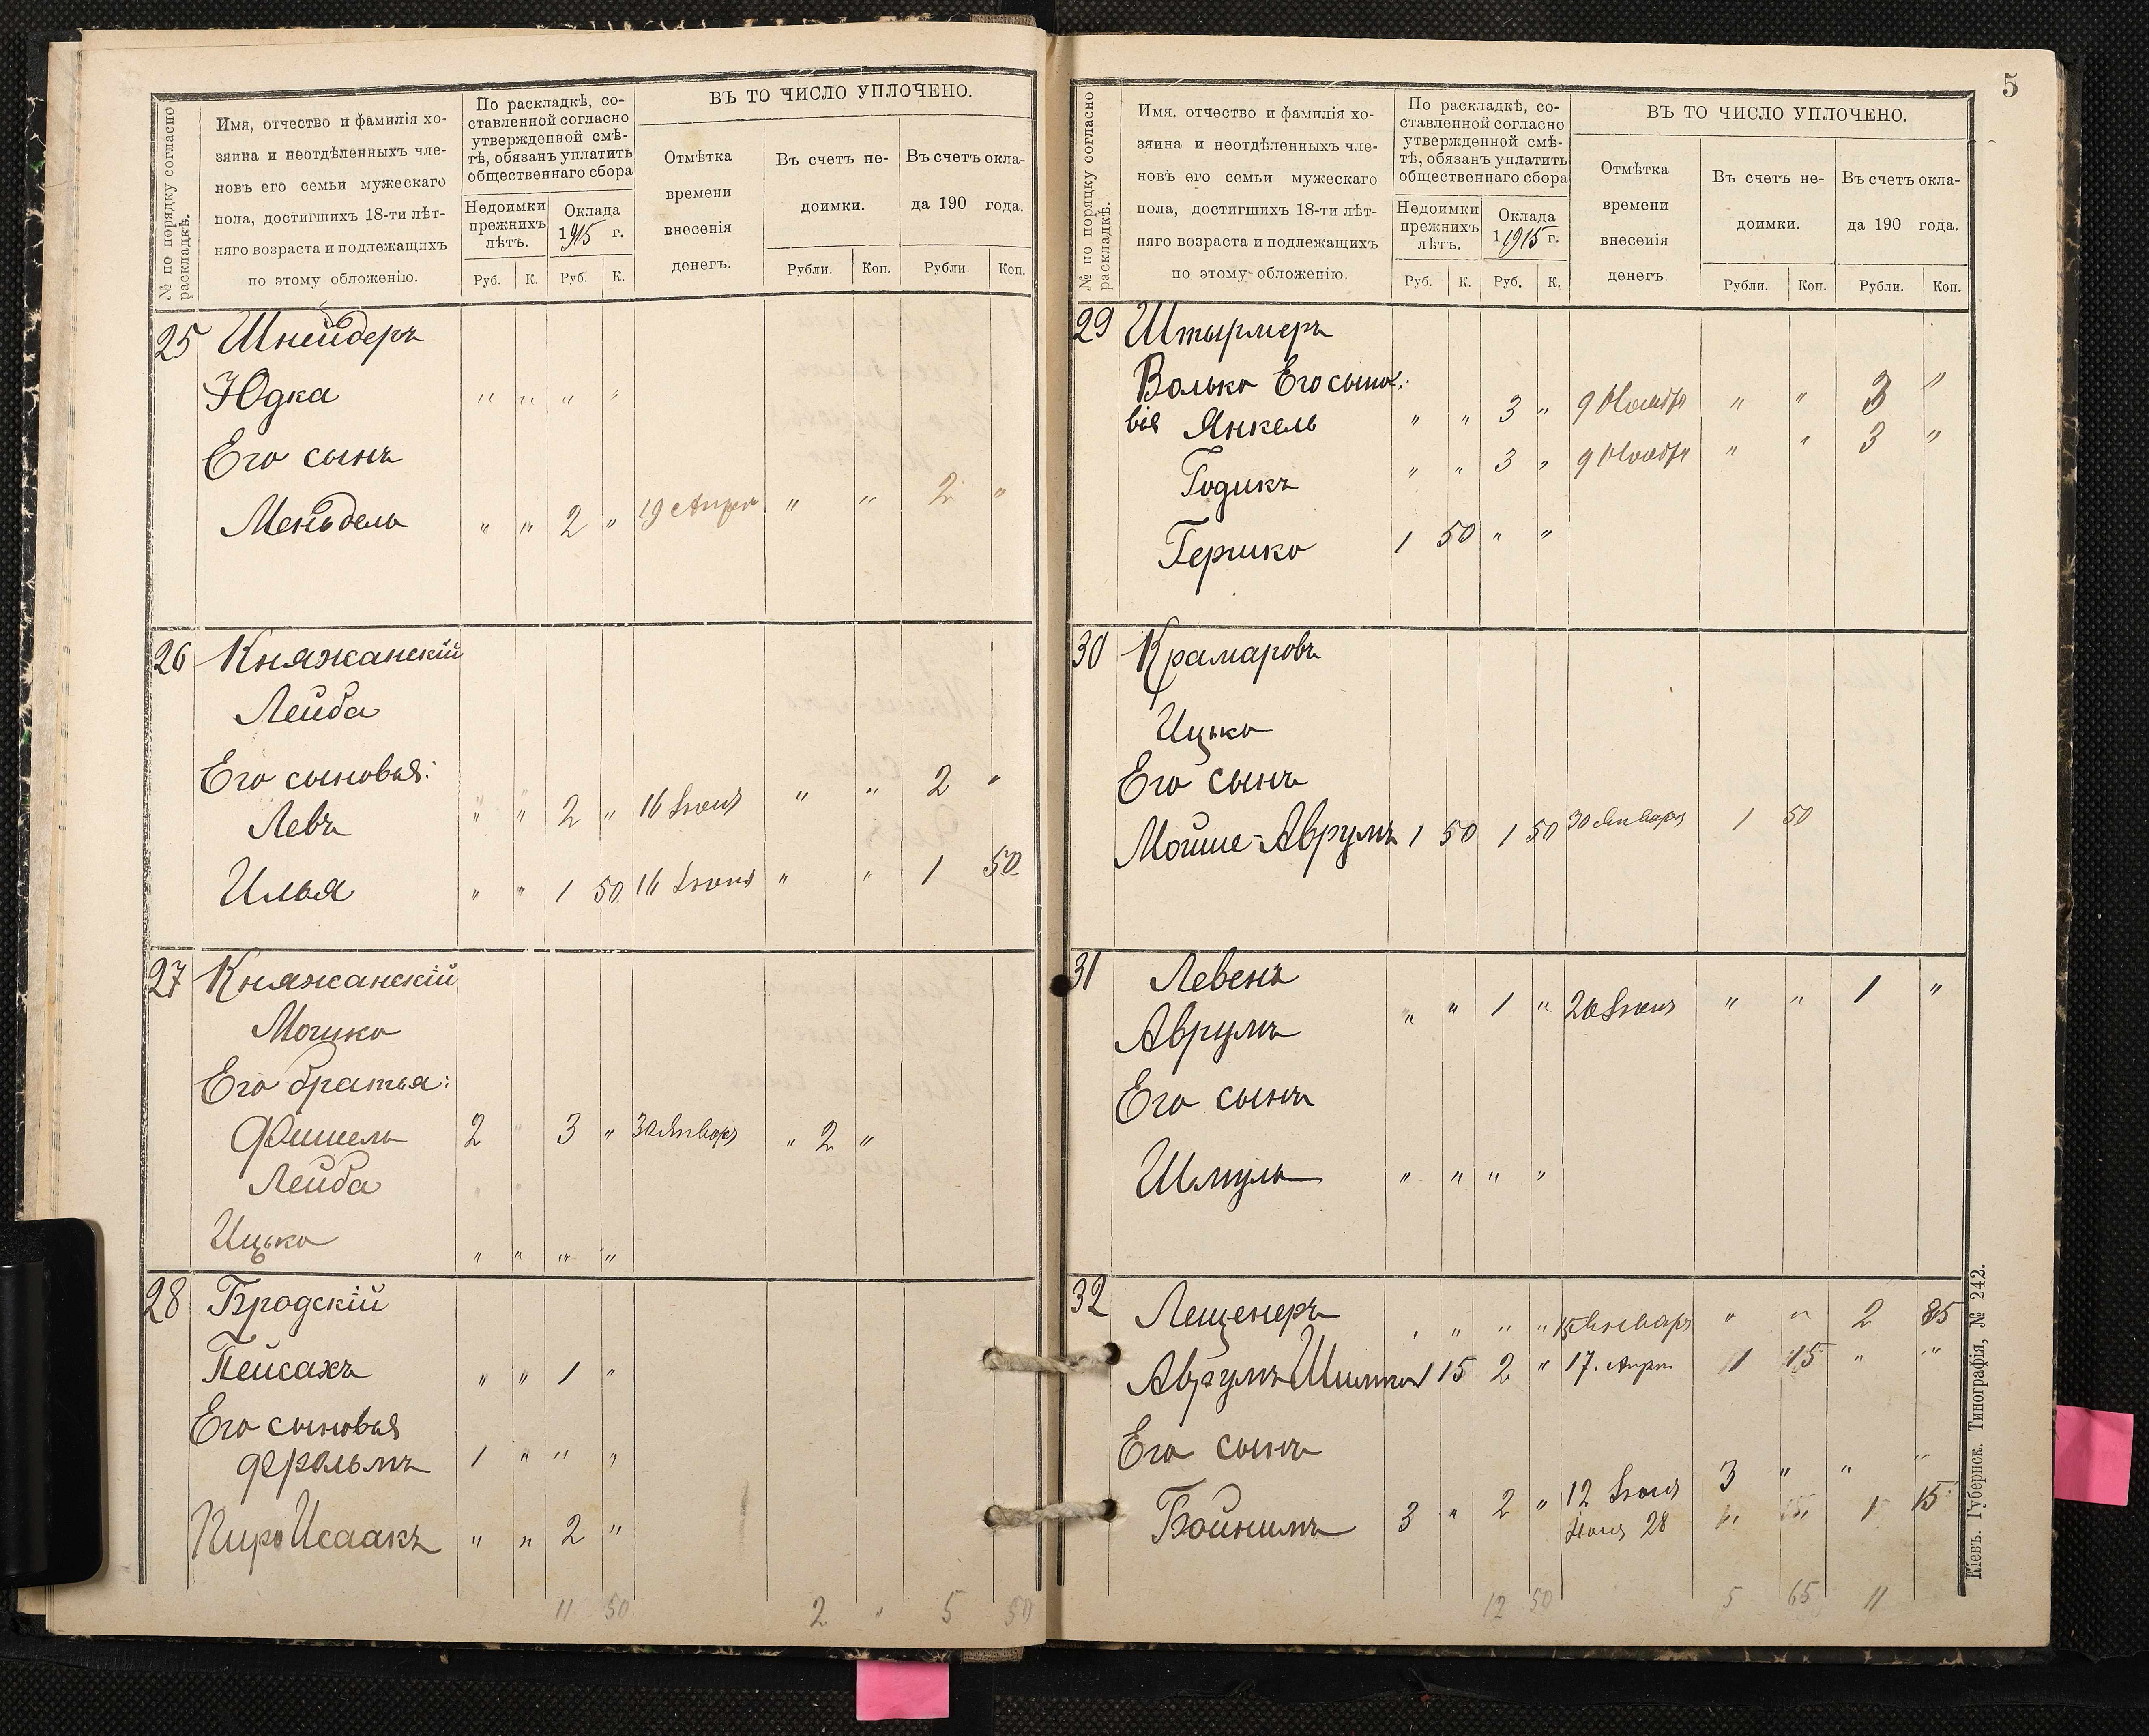 № по порядку согласно раскладкѣ.
Имя, отчество и фамилія хо-
зяина и неотдѣленныхъ чле-
новъ его семьи мужескаго
пола, достигшихъ 18-ти лѣт-
няго возраста и подлежащихъ
по этому обложенію.
По раскладкѣ, со-
ставленной согласно
утвержденной смѣ-
тѣ, обязанъ уплатить
общественнаго сбора
Недоимки
прежнихъ
лѣтъ.
Оклада
1915 г.
Руб. К. Руб. К.
ВЪ ТО ЧИСЛО УПЛОЧЕНО.
Отмѣтка
времени
внесенія
денегъ.
Въ счетъ не-
доимки.
Въ счетъ окла-
да 190 года.
Рубли. Коп. Рубли Коп.
25 Шнейдеръ
Юдка " " " "
Его сынъ
Меньдель " " 2 " 19 Апрел " " 2 "
26 Княжанскій
Лейба
Его сыновья:
Левъ " " 2 " 16 Іюня " " 2 "
Илья " " 1 50 16 Іюня " " 1 50
27 Княжанскій
Мошко
Его братья:
Фишель 2 " 3 " 30 Январ " 2 "
Лейба " "
Ицько " " " "
28 Бродскій
Пейсахъ " " 1 "
Его сыновья
Фрольмъ 1 " " "
Исаакъ " " 2 "
11 50 2 " 5 50
5
№ по порядку согласно раскладкѣ.
Имя. отчество и фамилія хо-
зяина и неотдѣленныхъ чле-
новъ его семьи мужескаго
пола, достигшихъ 18-ти лѣт-
няго возраста и подлежащихъ
по этому обложенію.
По раскладкѣ, со-
ставленной согласно
утвержденной смѣ-
тѣ, обязанъ уплатить
общественнаго сбора
Недоимки
прежнихъ
лѣтъ.
Оклада
1 1915 г.
Руб. К. Руб. К.
ВЪ ТО ЧИСЛО УПЛОЧЕНО.
Отмѣтка
времени
внесенія
денегъ
Въ счетъ не-
доимки.
Въ счетъ окла-
да 190 года.
Рубли. Коп. Рубли. Коп.
29 Штырмеръ
Волько Его сыно-
вія Янкель " " 3 " 9 Ноября " " 3 "
Годикъ " " 3 " 9 Ноября " " 3 "
Гершко 1 50 " "
30 Крамаровъ
Ицько
Его сынъ
Мойше-Аврумъ 1 50 1 50 30 Января 1 50
31 Левенъ
Аврумъ " " 1 " 20 Іюня " " 1 "
Его сынъ
Шмуль " " " "
32 Лещенеръ " " " " 15 Январ " " 2 85
Аврумъ 1 15 2 " 17. Апрл 1 15 " "
Его сынъ
Бойнимъ 3 " 2 " 12 Іюня 3 " " "
Іюня 28 1 15
12 50 5 65 11
Кіевъ. Губернск. Типографія, № 242.